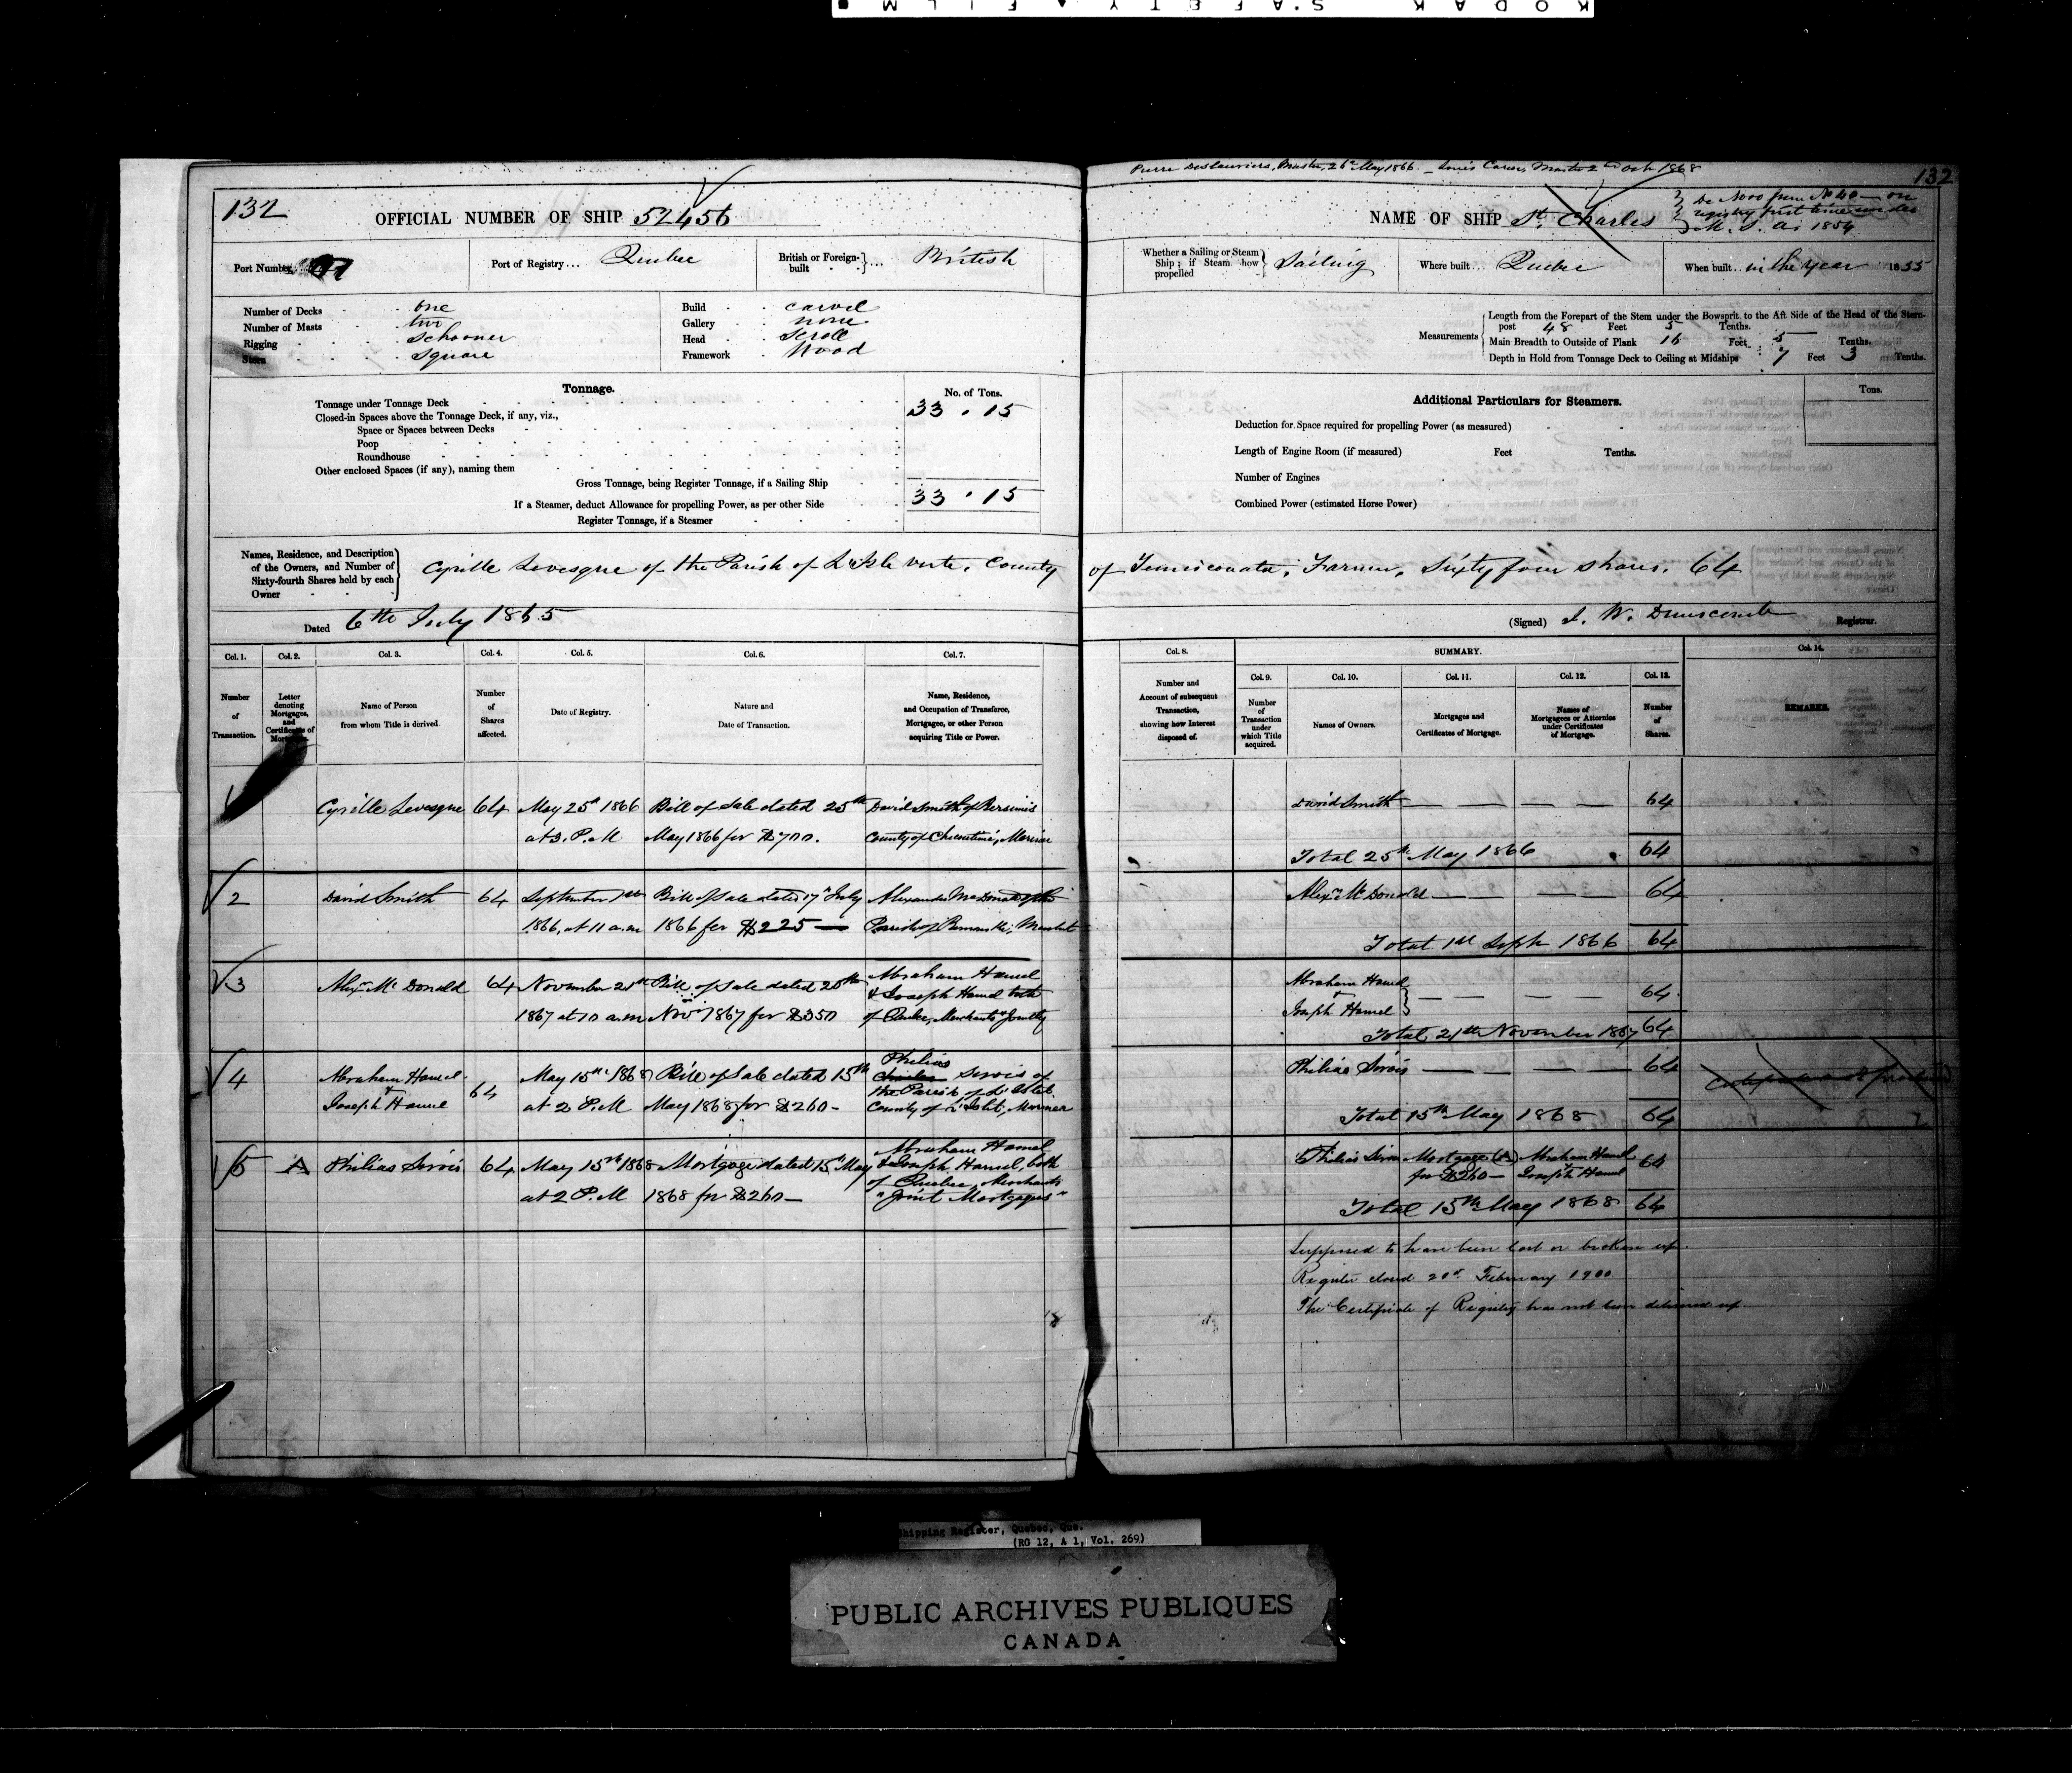 KODAK SAFETY FILM
Pierre Deslauriers, Master, 26th May 1866 – Louis Caron, Master 2nd Oct 1868
132
132
OFFICIAL NUMBER OF SHIP 52456
NAME OF SHIP St. Charles
De Novo from No 40 – on
registry first time under
M. S. A. 1854
Port Number
Port of Registry... Quebec
British or Foreign-built ... British
Whether a Sailing or Steam Ship; if Steam how propelled Sailing
Where built... Quebec
When built... in the year 1855
Number of Decks one
Number of Masts two
Rigging Schooner
Stern Square
Build carvel
Gallery none
Head Scroll
Framework Wood
Measurements
Length from the Forepart of the Stem under the Bowsprit to the Aft Side of the Head of the Stern-
post 48 Feet 5 Tenths.
Main Breadth to Outside of Plank 16 Feet 5 Tenths.
Depth in Hold from Tonnage Deck to Ceiling at Midships 7 Feet 3 Tenths.
Tonnage.
No. of Tons.
Tonnage under Tonnage Deck 33.15
Closed-in Spaces above the Tonnage Deck, if any, viz.,
Space or Spaces between Decks
Poop
Roundhouse
Other enclosed Spaces (if any), naming them
Gross Tonnage, being Register Tonnage, if a Sailing Ship
If a Steamer, deduct Allowance for propelling Power, as per other Side 33.15
Register Tonnage, if a Steamer
Additional Particulars for Steamers.
Tons.
Deduction for Space required for propelling Power (as measured)
Length of Engine Room (if measured) Feet Tenths.
Number of Engines
Combined Power (estimated Horse Power)
Names, Residence, and Description
of the Owners, and Number of
Sixty-fourth Shares held by each
Owner
Cyrille Levesque of the Parish of L'Isle verte, County of Temiscouata, Farmer, Sixty four shares. 64
Dated 6th July 1865
(Signed) J. W. Dunscomb Registrar.
Col. 1. Col. 2. Col. 3. Col. 4. Col. 5. Col. 6. Col. 7.
Number of Transaction.
Letter denoting Mortgages, and Certificates of Mortgage.
Name of Person from whom Title is derived
Number of Shares affected.
Date of Registry.
Nature and Date of Transaction.
Name, Residence, and Occupation of Transferee, Mortgagee, or other Person acquiring Title or Power.
Col. 8. SUMMARY. Col. 14.
Col. 9. Col. 10. Col. 11. Col. 12. Col. 13.
Number and Account of subsequent Transaction, showing how Interest disposed of.
Number of Transaction under which Title acquired.
Names of Owners.
Mortgages and Certificates of Mortgage.
Names of Mortgagees or Attornies under Certificates of Mortgage.
Number of Shares.
REMARKS.
Cyrille Levesque 64 May 25th 1866 Bill of Sale dated 25th David Smith of Bersimis
at 3. P.M May 1866 for $700. County of Chicoutimi, Mariner
David Smith 64
Total 25th May 1866 64
2 David Smith 64 September 1st Bill of Sale dated 17th July Alexander McDonald of the
1866, at 11 a.m 1866 for $225 Parish of Rimouski, Merchant
Alexr McDonald 64
Total 1st Septr 1866 64
3 Alexr McDonald 64 November 21st Bill of Sale dated 20th Abraham Hamel
& Joseph Hamel both
1867 at 10 a.m Novr 1867 for $350 of Quebec, Merchants "Jointly
Abraham Hamel
&
Joseph Hamel 64
Total 21st November 1867 64
4 Abraham Hamel
&
Joseph Hamel 64 May 15th 1868 Bill of Sale dated 15th
at 2 P.M May 1868 for $260 –
Philias
Sirois of
the Parish of L'Islet
County of L'Islet, Mariner
Philias Sirois 64
Total 15th May 1868 64
5 A Philias Sirois 64 May 15th 1868 Mortgage dated 15th May
at 2 P.M 1868 for $260 –
Abraham Hamel
& Joseph Hamel, both
of Quebec, Merchants
"Joint Mortgagees"
Philias Sirois Mortgage (A) Abraham Hamel 64
for $260 – Joseph Hamel
Total 15th May 1868 64
Supposed to have been lost or broken up.
Register closed 20th February 1900
The Certificate of Registry has not been delivered up.
Shipping Register, Quebec, Que.
(RG 12, A 1, Vol. 269)
PUBLIC ARCHIVES PUBLIQUES
CANADA